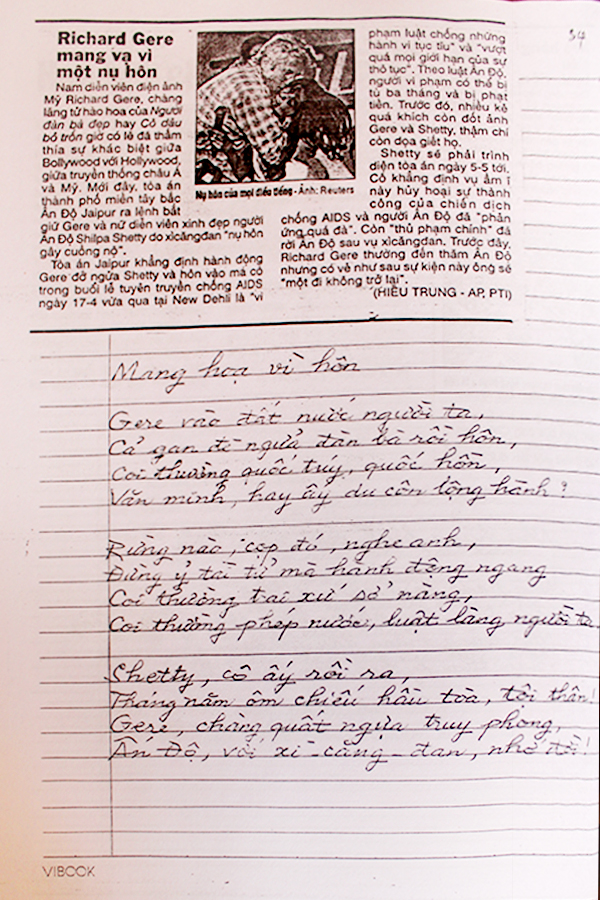 34
Richard Gere
mang vạ vì
một nụ hôn
Nam diễn viên điện ảnh
Mỹ Richard Gere, chàng
lãng tử hào hoa của Người
đàn bà đẹp hay Cô dâu
bỏ trốn giờ có lẽ đã thấm
thía sự khác biệt giữa
Bollywood với Hollywood,
giữa truyền thống châu Á
và Mỹ. Mới đây, tòa án
thành phố miền tây bắc
Ấn Độ Jaipur ra lệnh bắt
giữ Gere và nữ diễn viên xinh đẹp người
Ấn Độ Shilpa Shetty do xìcăngđan "nụ hôn
gây cuồng nộ".
Tòa án Jaipur khẳng định hành động
Gere đỡ ngửa Shetty và hôn vào má cô
trong buổi lễ tuyên truyền chống AIDS
ngày 17-4 vừa qua tại New Dehli là "vi
Nụ hôn của mọi điều tiếng - Ảnh: Reuters
phạm luật chống những
hành vi tục tĩu" và "vượt
quá mọi giới hạn của sự
thô tục". Theo luật Ấn Độ,
người vi phạm có thể bị
tù ba tháng và bị phạt
tiền. Trước đó, nhiều kẻ
quá khích còn đốt ảnh
Gere và Shetty, thậm chí
còn dọa giết họ.
Shetty sẽ phải trình
diện tòa án ngày 5-5 tới.
Cô khẳng định vụ ầm ĩ
này hủy hoại sự thành
công của chiến dịch
chống AIDS và người Ấn Độ đã "phản
ứng quá đà". Còn "thủ phạm chính" đã
rời Ấn Độ sau vụ xìcăngđan. Trước đây,
Richard Gere thường đến thăm Ấn Độ
nhưng có vẻ như sau sự kiện này ông sẽ
"một đi không trở lại".
(HIẾU TRUNG - AP, PTI)
Mang họa vì hôn
Gere vào đất nước người ta,
Cả gan đè ngửa đàn bà rồi hôn,
Coi thường quốc túy, quốc hồn,
Văn minh, hay ấy du côn lộng hành?
Rừng nào, cọp đó, nghe anh,
Đừng ỷ tài tử mà hành động ngang
Coi thường tại xứ sở nàng,
Coi thường phép nước, luật làng, người ta
Shetty, cô ấy rồi ra,
Tháng năm ôm chiếu hầu tòa, tội thân!
Gere, chàng quất ngựa truy phong,
Ấn Độ, với xì-căng-đan, nhớ đời!
VIBOOK